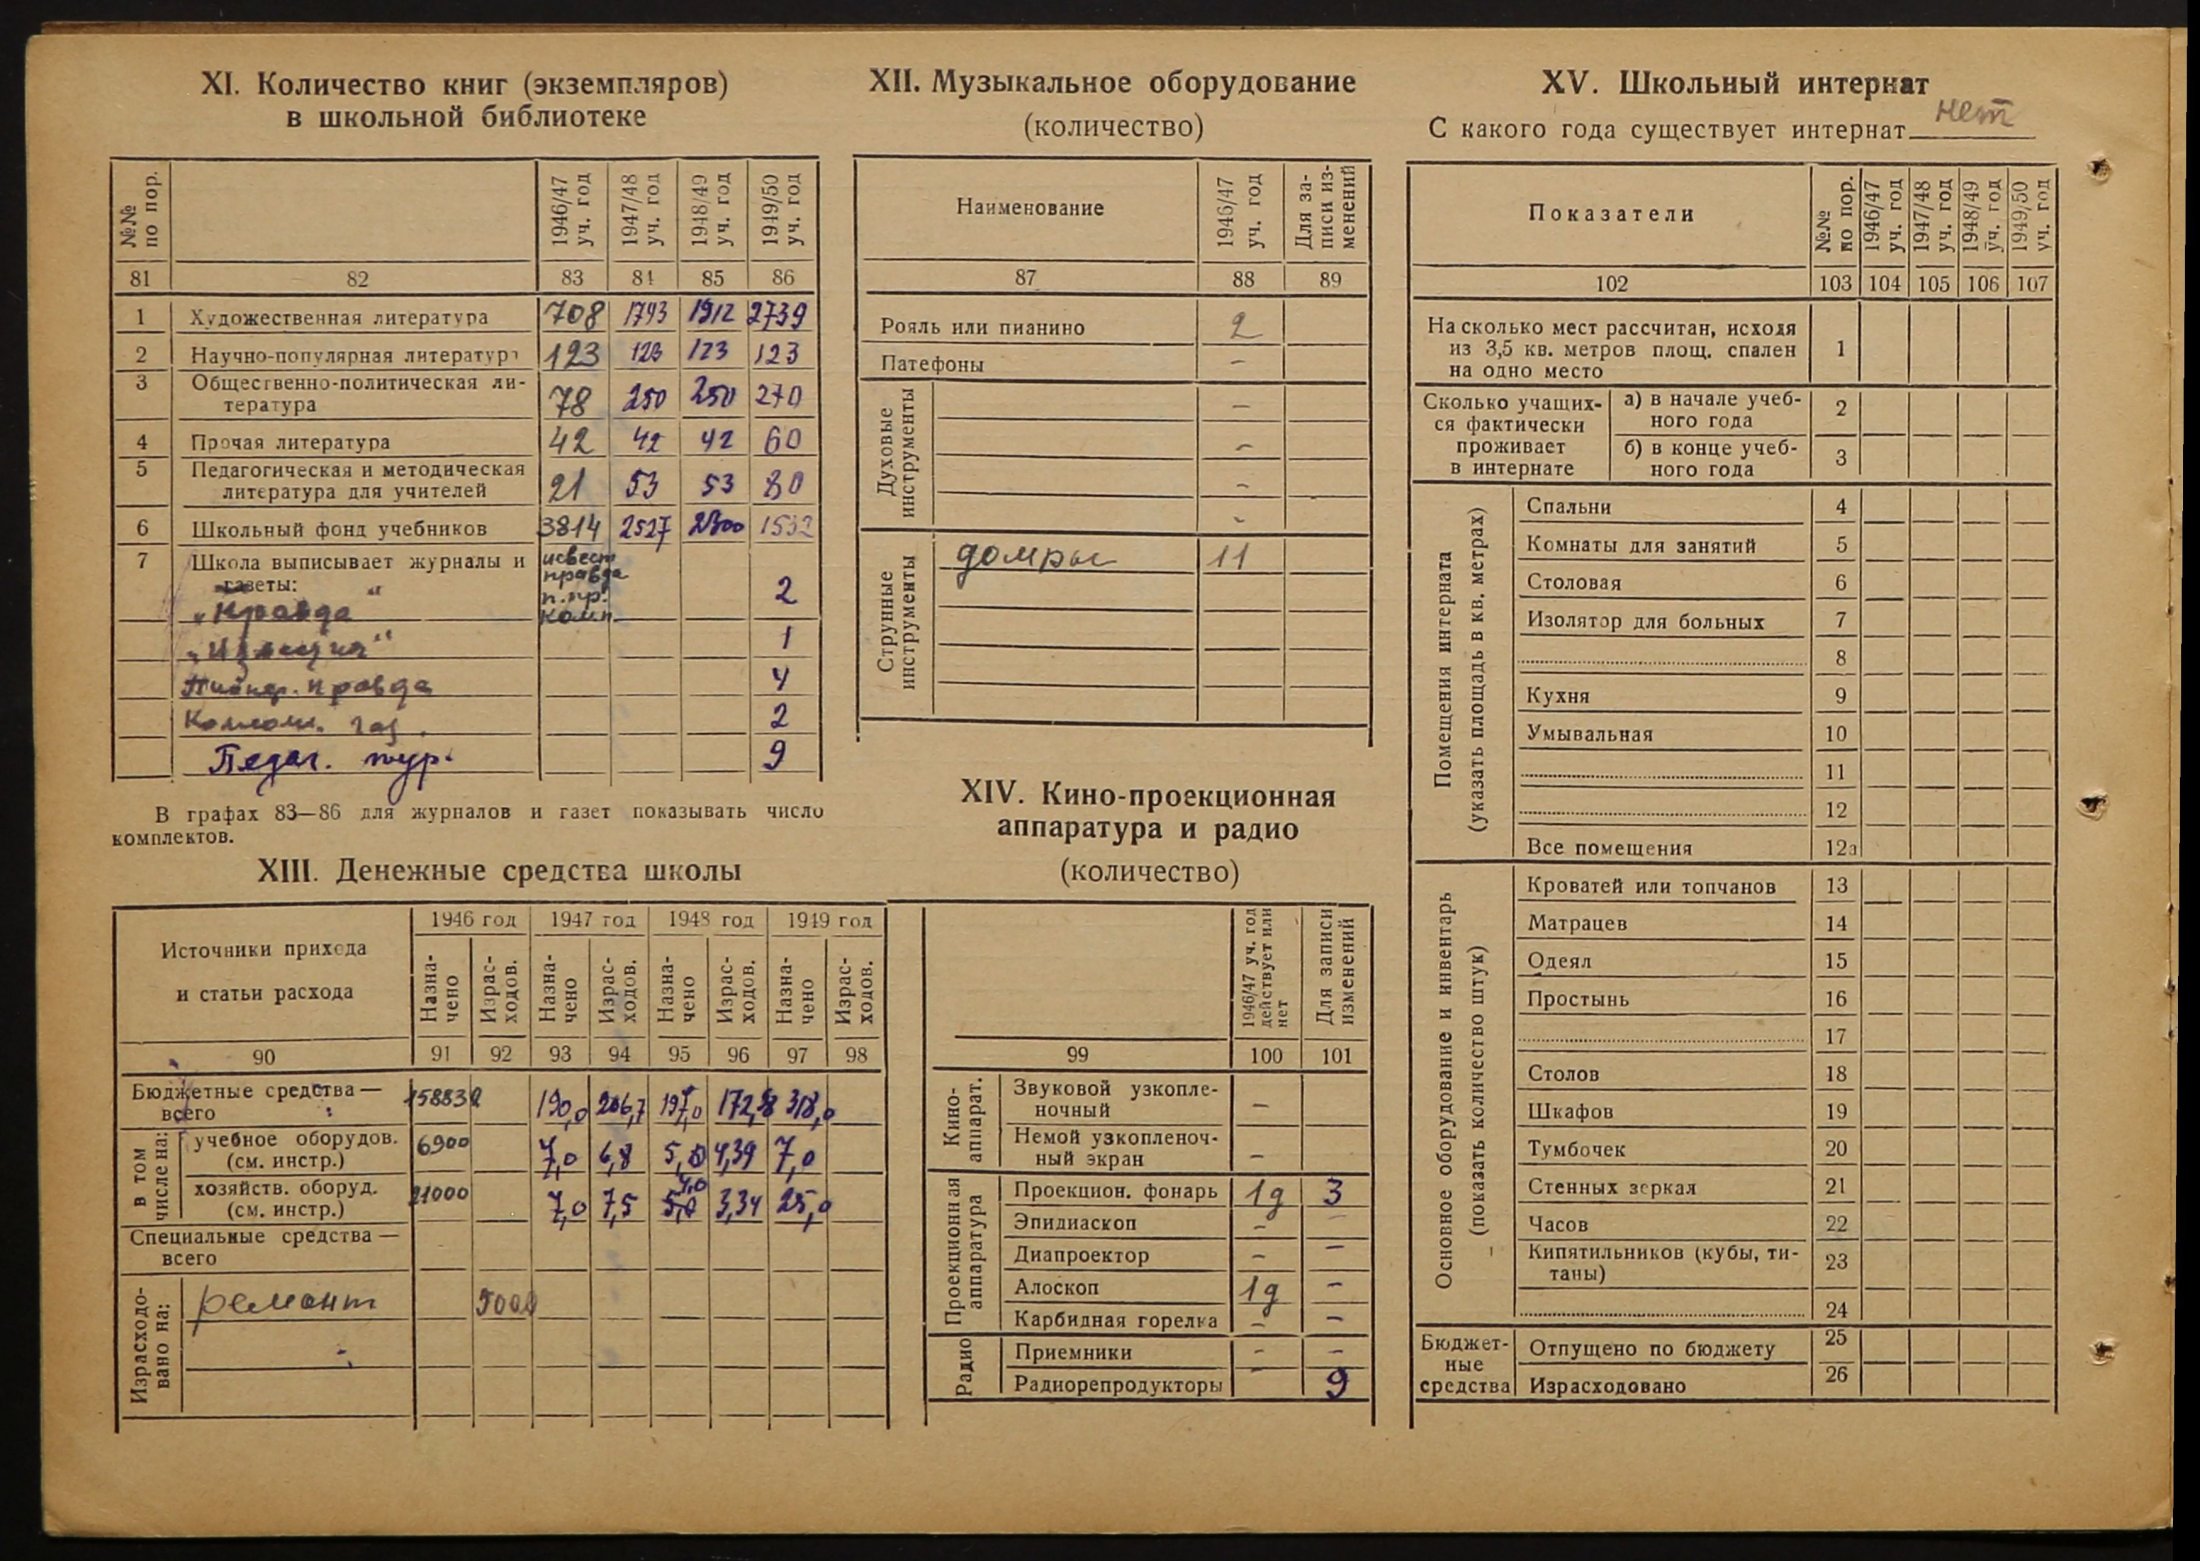 XI. Количество книг (экземпляров)
в школьной библиотеке
№№ по пор.
1946/47 уч. год
1947/48 уч. год
1948/49 уч. год
1949/50 уч. год
81 82 83 84 85 86
1 Художественная литература 708 1793 1912 2739
2 Научно-популярная литература 123 123 123 123
3 Общественно-политическая ли-
тература 78 250 250 270
4 Прочая литература 42 42 42 60
5 Педагогическая и методическая
литература для учителей 21 53 53 80
6 Школьный фонд учебников 3814 2527 2300 1532
7 Школа выписывает журналы и
газеты:
извест
правда
п. пр.
комп.
„Правда“ 2
„Известия“ 1
Пионер. правда 4
Комсом. газ. 2
Педаг. жур. 9
В графах 83—86 для журналов и газет показывать число
комплектов.
XIII. Денежные средства школы
Источники прихода
и статьи расхода
1946 год 1947 год 1948 год 1949 год
Назна-чено Израс-ходов. Назна-чено Израс-ходов. Назна-чено Израс-ходов. Назна-чено Израс-ходов.
90 91 92 93 94 95 96 97 98
Бюджетные средства —
всего 158832 190,0 206,7 197,0 172,8 318,0
в том числе на:
учебное оборудов.
(см. инстр.) 6900 7,0 6,8 5,0 4,39 7,0
хозяйств. оборуд.
(см. инстр.) 21000 7,0 7,5 5,0 4,0 3,34 25,0
Специальные средства —
всего
Израсходо-вано на:
ремонт 5000
XII. Музыкальное оборудование
(количество)
Наименование
1946/47 уч. год
Для за-писи из-менений
87 88 89
Рояль или пианино 2
Патефоны –
Духовые инструменты
–
–
–
–
Струнные инструменты
домры 11
XIV. Кино-проекционная
аппаратура и радио
(количество)
1946/47 уч. год действует или нет
Для записи изменений
99 100 101
Кино-аппарат.
Звуковой узкопле-
ночный –
Немой узкопленоч-
ный экран –
Проекционная аппаратура
Проекцион. фонарь 1д 3
Эпидиаскоп – –
Диапроектор – –
Алоскоп 1д –
Карбидная горелка – –
Радио
Приемники – –
Радиорепродукторы – 9
XV. Школьный интернат
С какого года существует интернат нет
Показатели
№№ по пор.
1946/47 уч. год
1947/48 уч. год
1948/49 уч. год
1949/50 уч. год
102 103 104 105 106 107
На сколько мест рассчитан, исходя
из 3,5 кв. метров площ. спален
на одно место 1
Сколько учащих-
ся фактически
проживает
в интернате
а) в начале учеб-
ного года 2
б) в конце учеб-
ного года 3
Помещения интерната
(указать площадь в кв. метрах)
Спальни 4
Комнаты для занятий 5
Столовая 6
Изолятор для больных 7
8
Кухня 9
Умывальная 10
11
12
Все помещения 12а
Основное оборудование и инвентарь
(показать количество штук)
Кроватей или топчанов 13
Матрацев 14
Одеял 15
Простынь 16
17
Столов 18
Шкафов 19
Тумбочек 20
Стенных зеркал 21
Часов 22
Кипятильников (кубы, ти-
таны) 23
24
Бюджет-
ные
средства
Отпущено по бюджету 25
Израсходовано 26